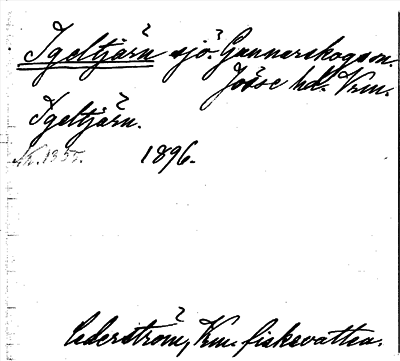 Igeltjärn sjö. Gunnarskogs sn.
Jösse hd. Vrm.
Igeltjärn.
1896.
Cederström, Vrm. fiskevatten.